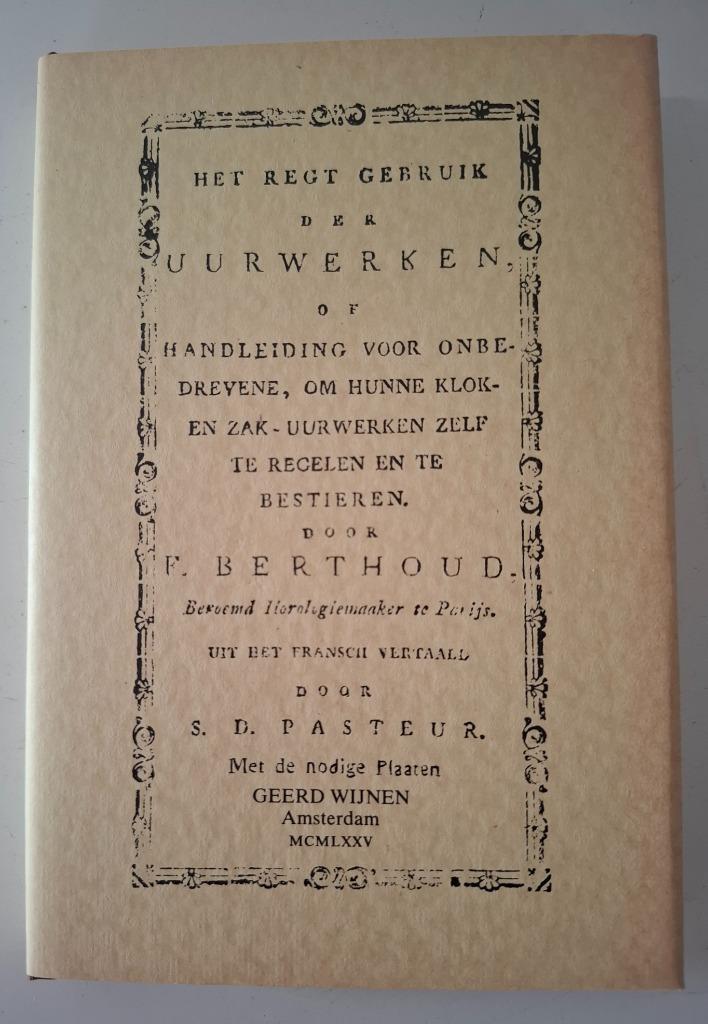 HET REGT GEBRUIK
DER
UURWERKEN,
OF
HANDLEIDING VOOR ONBE-
DREVENE, OM HUNNE KLOK-
EN ZAK-UURWERKEN ZELF
TE REGELEN EN TE
BESTIEREN.
DOOR
F. BERTHOUD.
Beroemd Horologiemaaker te Parijs.
UIT HET FRANSCH VERTAALD
DOOR
S. D. PASTEUR.
Met de nodige Plaaten
GEERD WIJNEN
Amsterdam
MCMLXXV